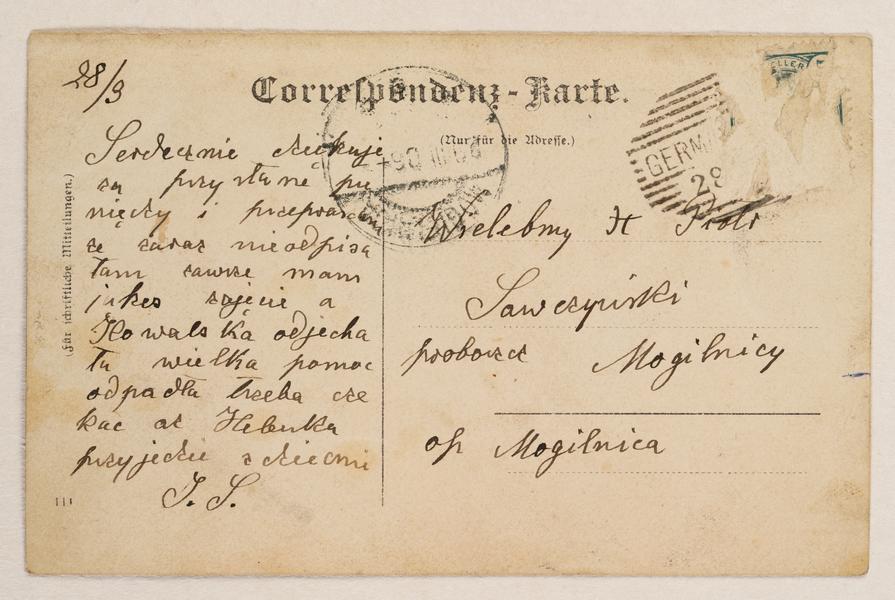 28/3
Correspondenz-Karte.
(Nur für die Adresse.)
(Für schriftliche Mitteilungen.)
ELLER
GERM
28
Serdecznie dziękuje
za przysłane pie
niędzy i przeprasz
że zaraz nieodpisa
łam zawsze mam
jakeś zajęcie a
Kowalska odjecha
ła wielka pomoc
odpadła trzeba cze
kac aż Helenka
przyjedzie z dziecmi
J. S.
Wielebny X Piotr
Sawczyński
proboszcz Mogilnicy
op Mogilnica
111